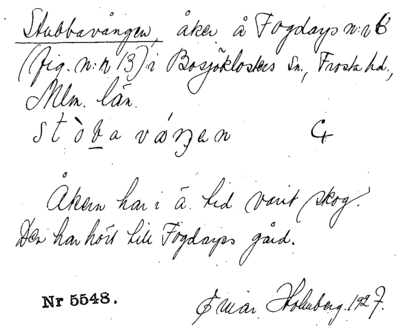 Stubbavången, åker å Fogdarps n:r 6
(fig. n:r 13) i Bosjöklosters sn., Frosta hd.,
Mlm. län.
stòba váŋen
Åkern har i ä. tid varit skog.
Den har hört till Fogdarps gård.
Nr 5548. Holmberg. 1927.